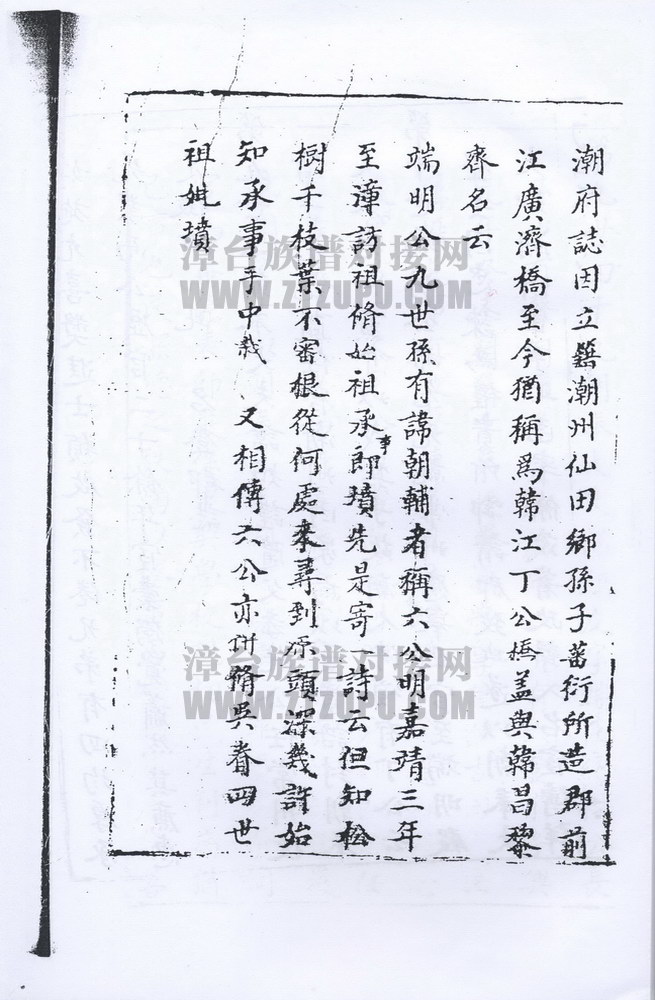 潮府誌因立籍潮州仙田鄉孫子蕃衍所造郡前
江廣濟橋至今猶稱為韓江丁公橋盖與韓昌黎
齊名云
端明公九世孫有諱朝輔者稱六公明嘉靖三年
至漳訪祖脩始祖承事郎墳先是寄一詩云但知松
樹千枝葉不審根從何處来尋到源頭深幾許始
知承事手中栽 又相傳六公亦併脩吳養四世
祖妣墳
漳台族谱对接网
WWW.ZTZUPU.COM
漳台族谱对接网
WWW.ZTZUPU.COM